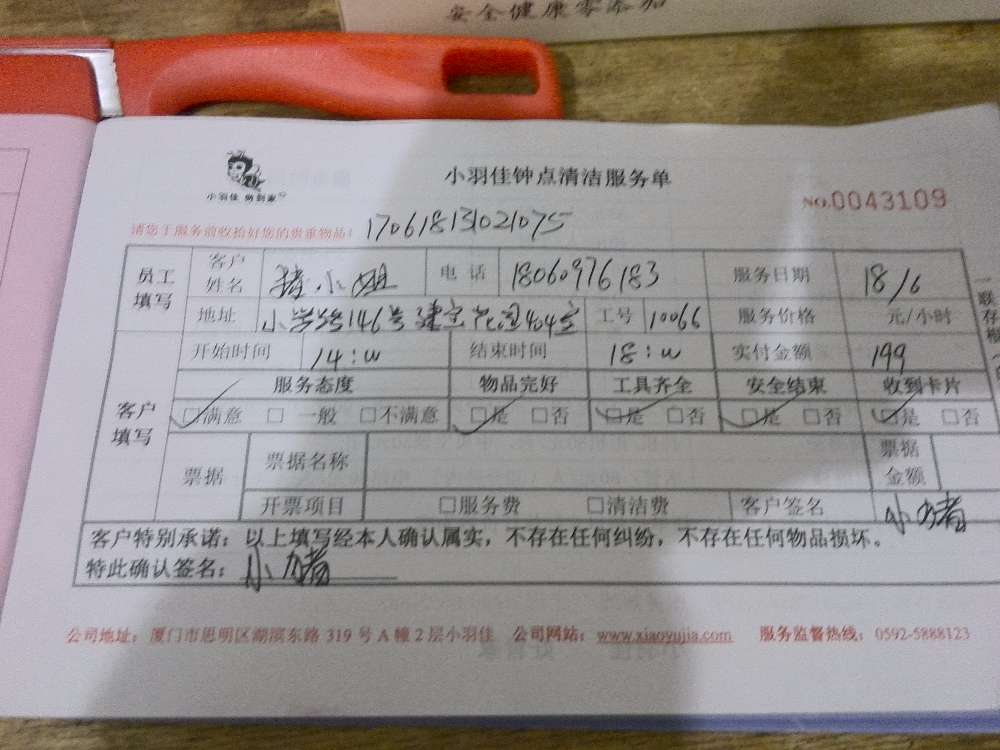 安全健康零添加
小羽佳 到家
小羽佳钟点清洁服务单
NO.0043109
请您于服务前收拾好您的贵重物品：
170618131021075
员工填写 客户姓名 猪小姐 电话 18060976183 服务日期 18/6
地址 小学路146号建宝花园404室 工号 10066 服务价格 元/小时
客户填写 开始时间 14:00 结束时间 18:00 实付金额 199
服务态度 物品完好 工具齐全 安全结束 收到卡片
☑满意 □ 一般 □不满意 ☑是 □否 ☑是 □否 ☑是 □否 ☑是 □否
票据 票据名称 票据金额
开票项目 □服务费 □清洁费 客户签名 小猪
客户特别承诺：以上填写经本人确认属实，不存在任何纠纷，不存在任何物品损坏。
特此确认签名：小猪
公司地址：厦门市思明区湖滨东路 319 号 A 幢 2 层小羽佳 公司网站：www.xiaoyujia.com 服务监督热线：0592-5888123